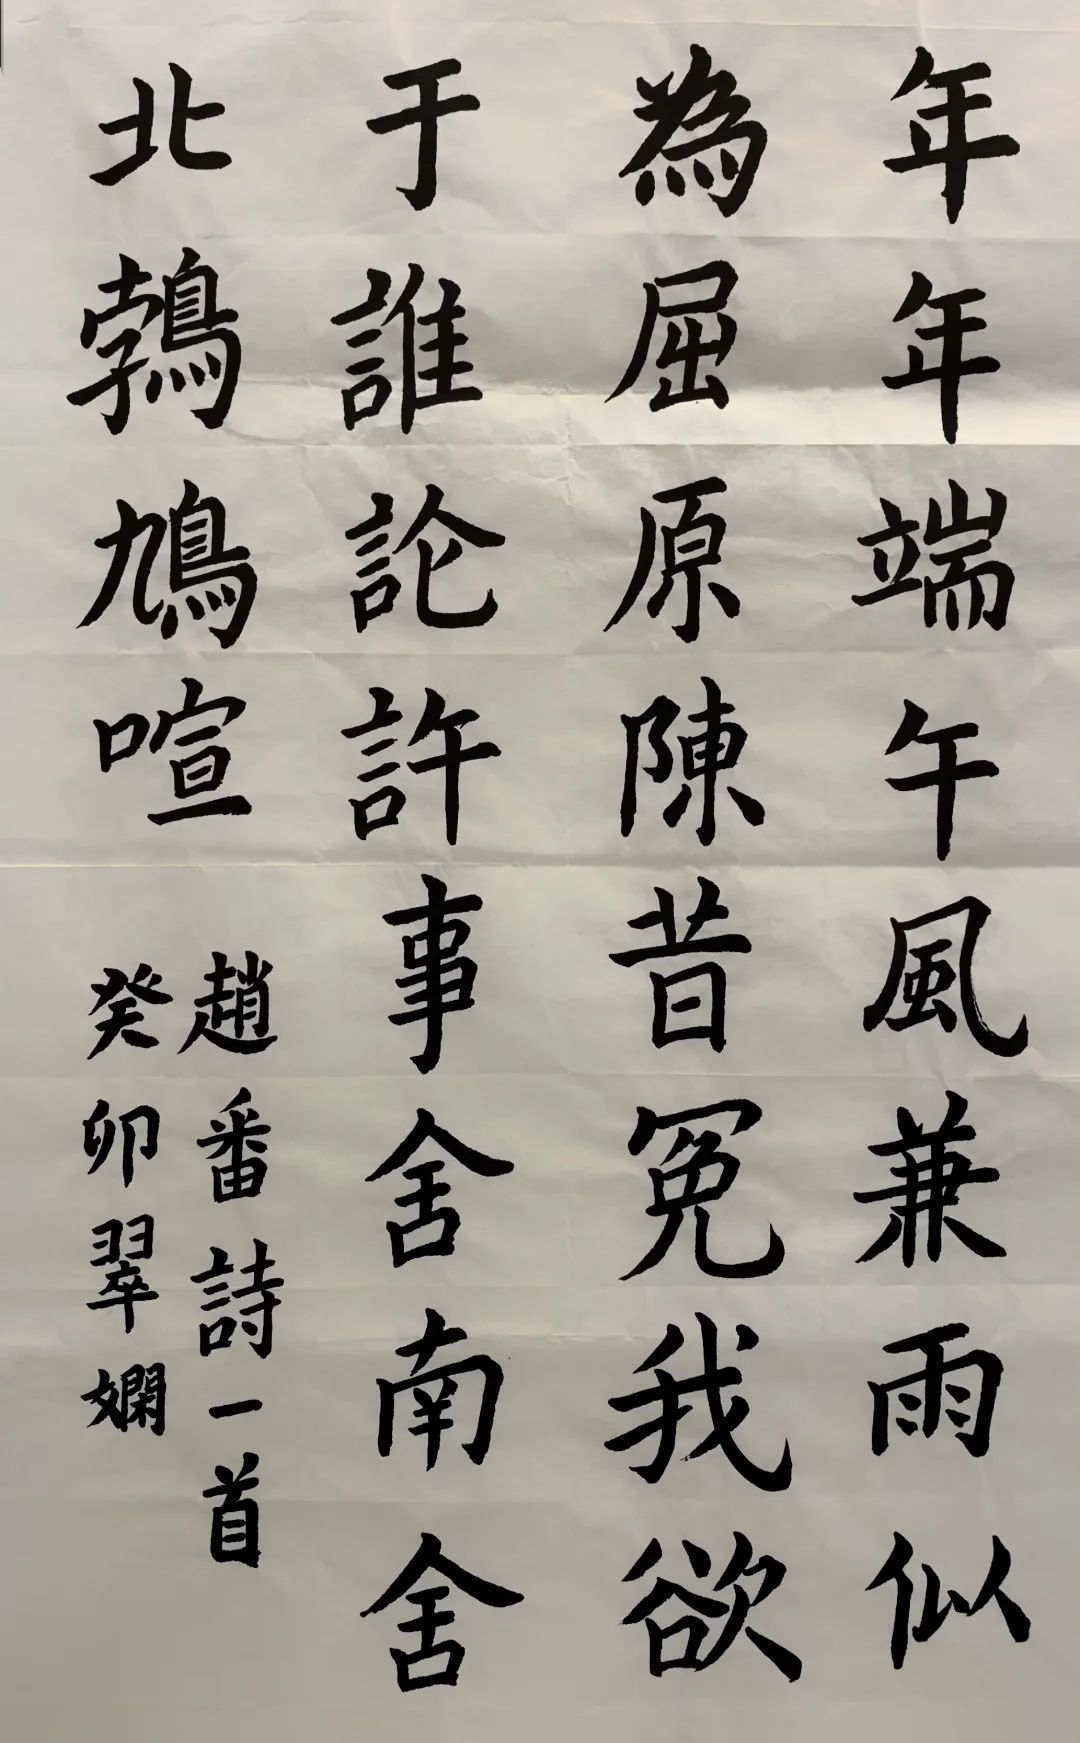 年年端午風兼雨似
為屈原陳昔冤我欲
于誰論許事舍南舍
北鵓鳩喧
趙番詩一首
癸卯翠嫻